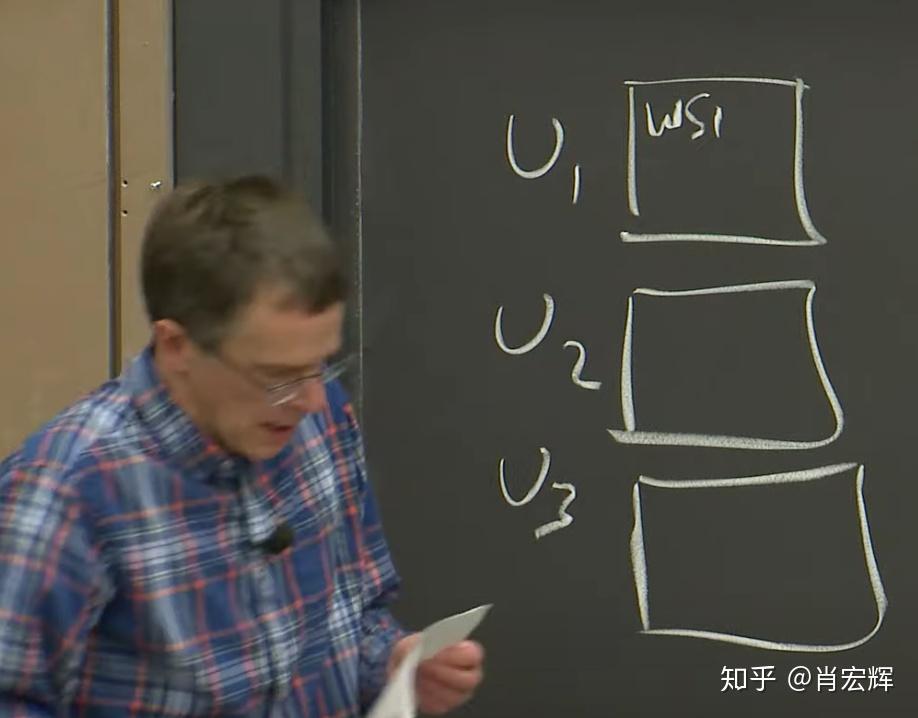 U1 WS1
U2
U3
知乎 @肖宏辉